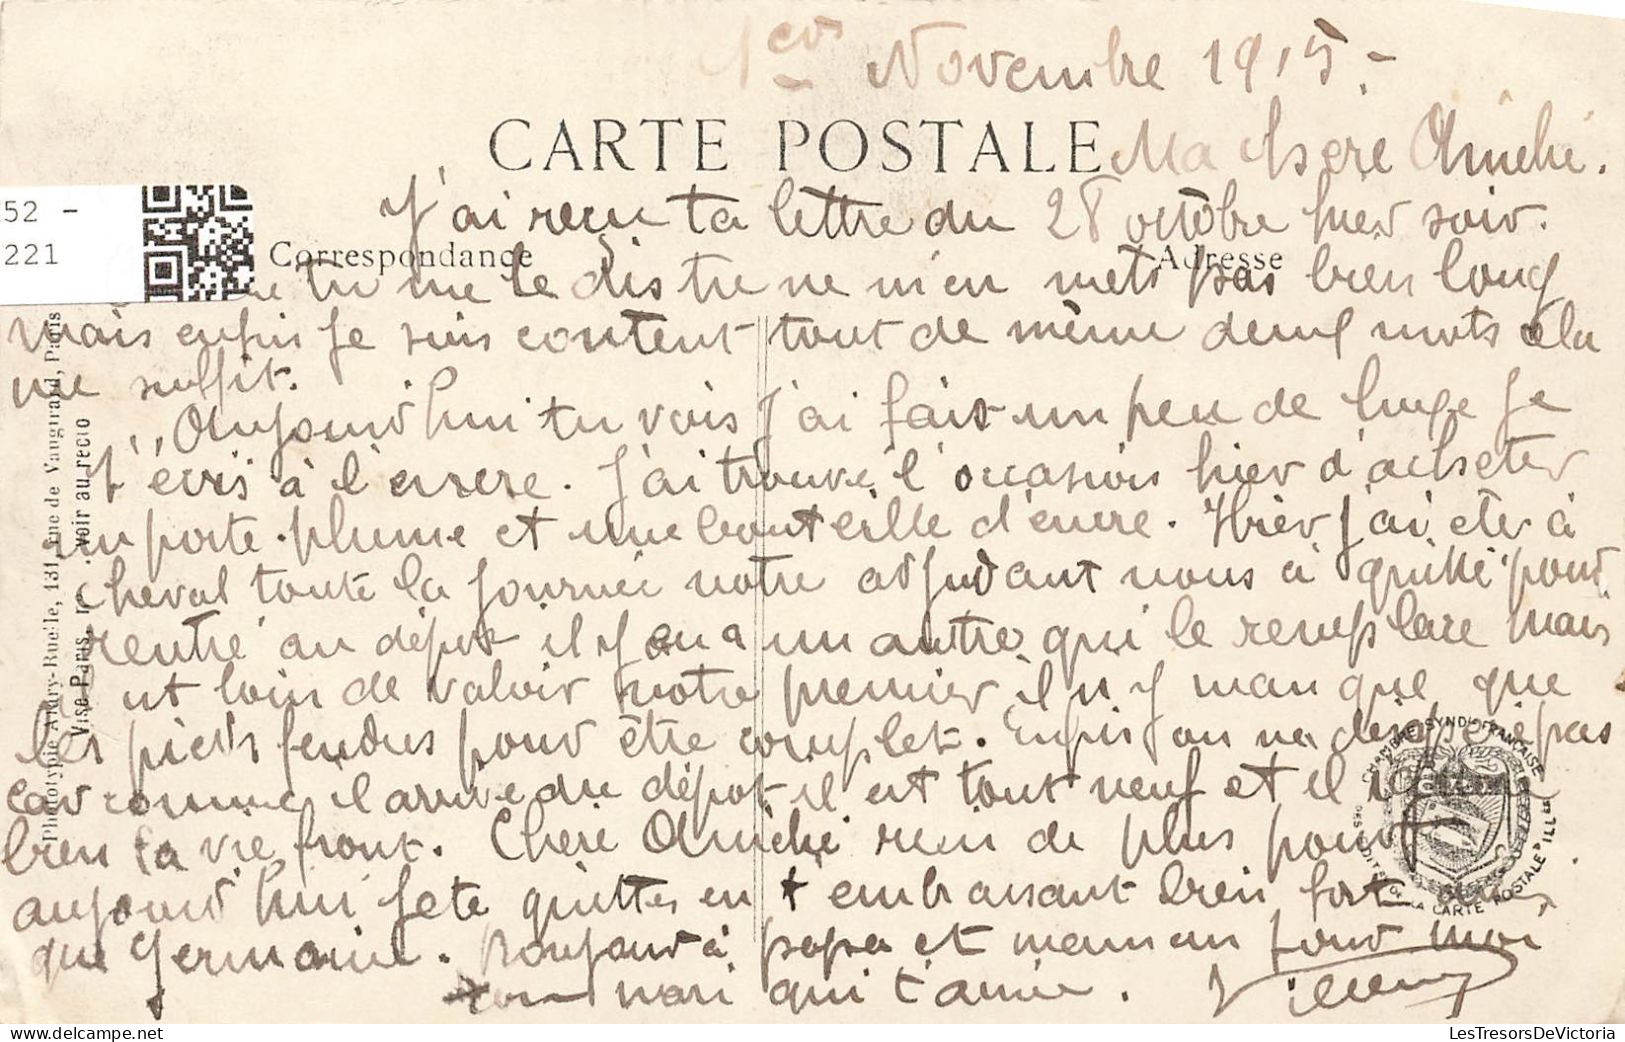 1er Novembre 1915.-
CARTE POSTALE
Ma chère Aimée.
J'ai reçu ta lettre du 28 octobre hier soir.
Correspondance
Adresse
52 -
221
tu me le dis tu ne m'en mets pas bien long
mais enfin je suis content tout de même deux mots cela
me suffit.
Aujourd'hui tu vois j'ai fait un peu de luxe je
t'ecris à l'encre. J'ai trouvé l'occasion hier d'acheter
un porte-plume et une bouteille d'encre. Hier j'ai éter à
cheval toute la journée notre adjudant nous a quitté pour
rentré au dépot il y en a un autre qui le remplace mais
est loin de valoir notre premier il n'y manque que
les pieds fendus pour être complet. Enfin on ne désespère pas
car comme il arrive du dépot il est tout neuf et il
bien la vie front. Chère Aimée rien de plus pour
aujourd'hui je te quittes en t'embrassant bien fort ainsi
que Germaine. Bonjour à papa et maman pour moi
ton mari qui t'aime.
Phototypie A. Rue de Vaugirard, Paris
Visé Paris, voir au recto
CHAMBRE SYNDle FRANÇAISE
CARTE POSTALE ILLée
LesTresorsDeVictoria.com